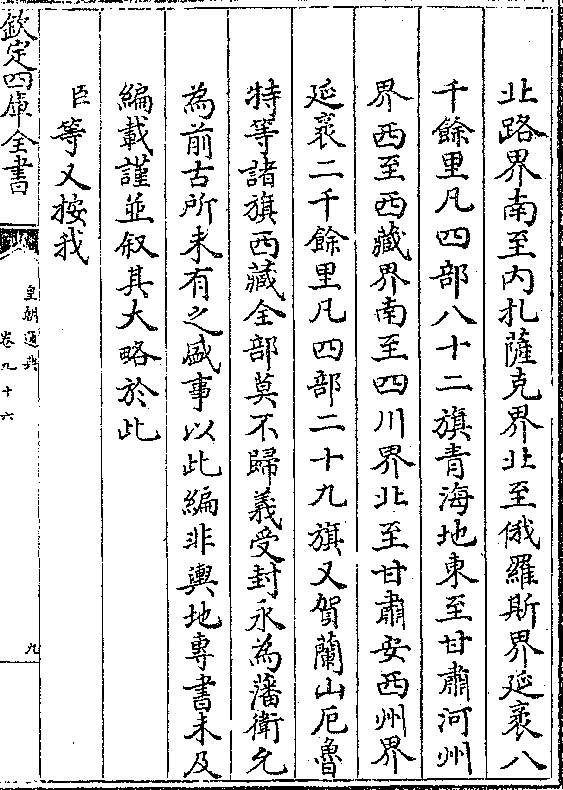 北路界南至内扎薩克界北至俄羅斯界延袤八
千餘里凡四部八十二旗青海地東至甘肅河州
界西至西藏界南至四川界北至甘肅安西州界
延袤二千餘里凡四部二十九旗又賀蘭山厄魯
特等諸旗西藏全部莫不歸義受封永為藩衛允
為前古所未有之盛事以此編非輿地專書未及
編載謹並叙其大略於此
臣等又按我
欽定四庫全書
皇朝通典
卷九十六
九